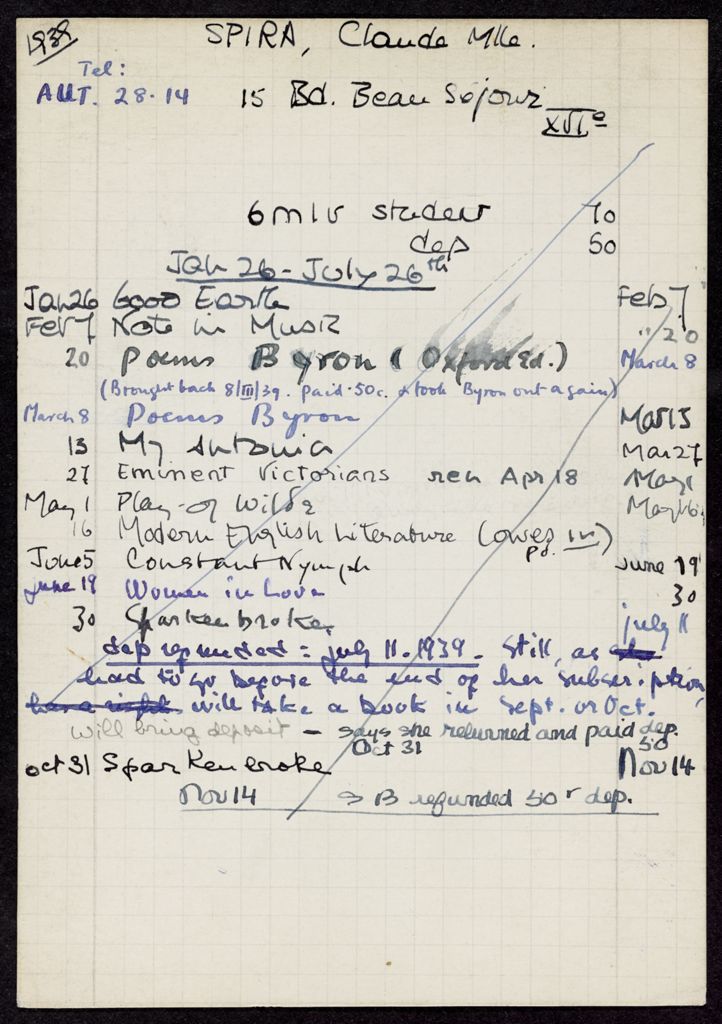 1939
SPIRA, Claude Mlle.
Tel:
AUT. 28.14
15 Bd. Beau Séjour
XVIe
6 m 1 v student 70
dep 50
Jan 26 - July 26th
Jan 26 Good Earth Feb 7
Feb 7 Note in Music " 20
20 Poems Byron (Oxford Ed.) March 8
(Brought back 8/III/39. paid .50c. & took Byron out again)
March 8 Poems Byron Mar 13
13 My Antonia Mar 27
27 Eminent Victorians ren Apr 18 May 1
May 1 Play of Wilde May 16
16 Modern English Literature (owes
pd.
June 5 Constant Nymph June 19
June 19 Women in Love 30
30 Sparkenbroke July 11
dep refunded = July 11. 1939 - Still, as
had to go before the end of her subscription,
have a right will take a book in Sept. or Oct.
will bring deposit - says she returned and paid dep.
Oct 31 50
Oct 31 Sparkenbroke Nov 14
Nov 14 SB refunded 50 r dep.